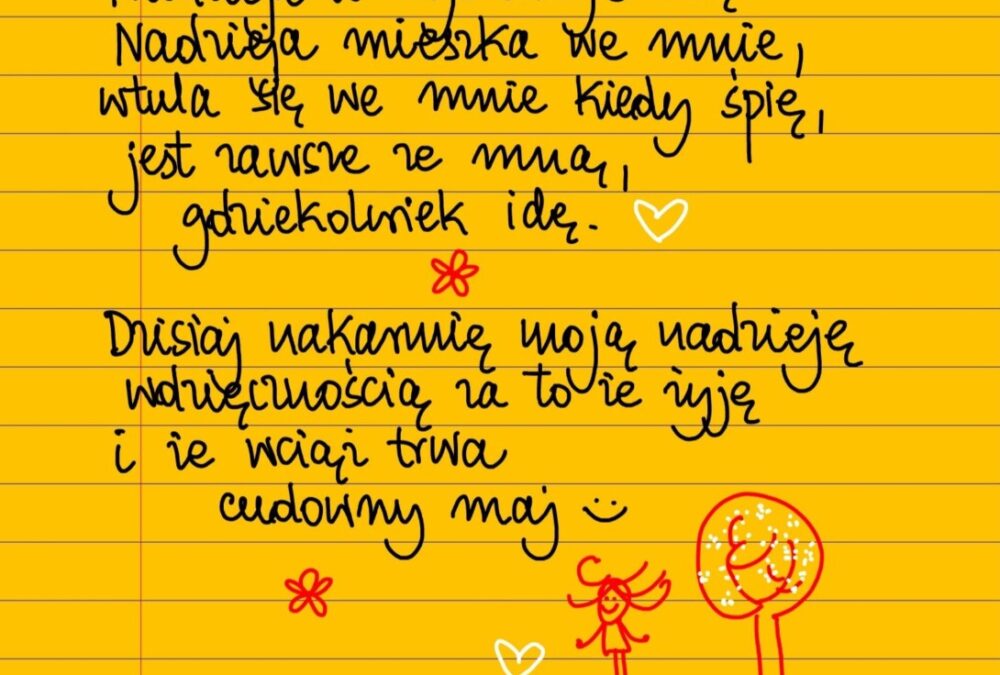 Nadzieja mieszka we mnie,
wtula się we mnie kiedy śpię,
jest zawsze ze mną,
gdziekolwiek idę.
Dzisiaj nakarmię moją nadzieję
wdzięcznością za to że żyję
i że wciąż trwa
cudowny maj